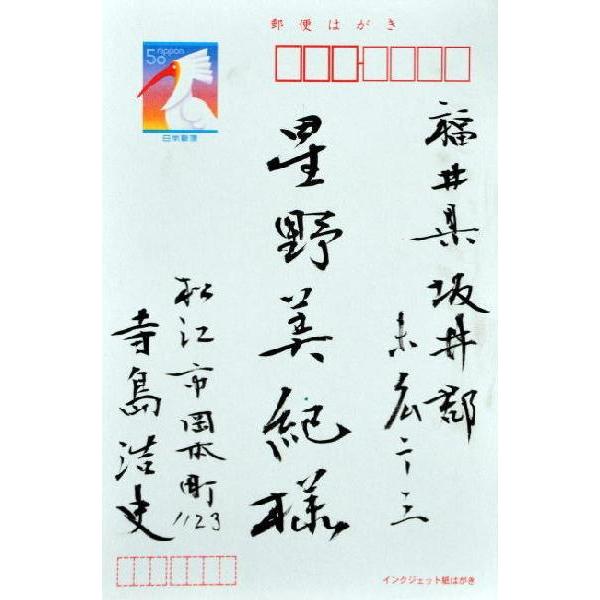 郵便はがき
50 nippon
日本郵便
福井県坂井郡
末広二ー三
星野美紀様
松江市岡本町1123
寺島浩史
インクジェット紙はがき